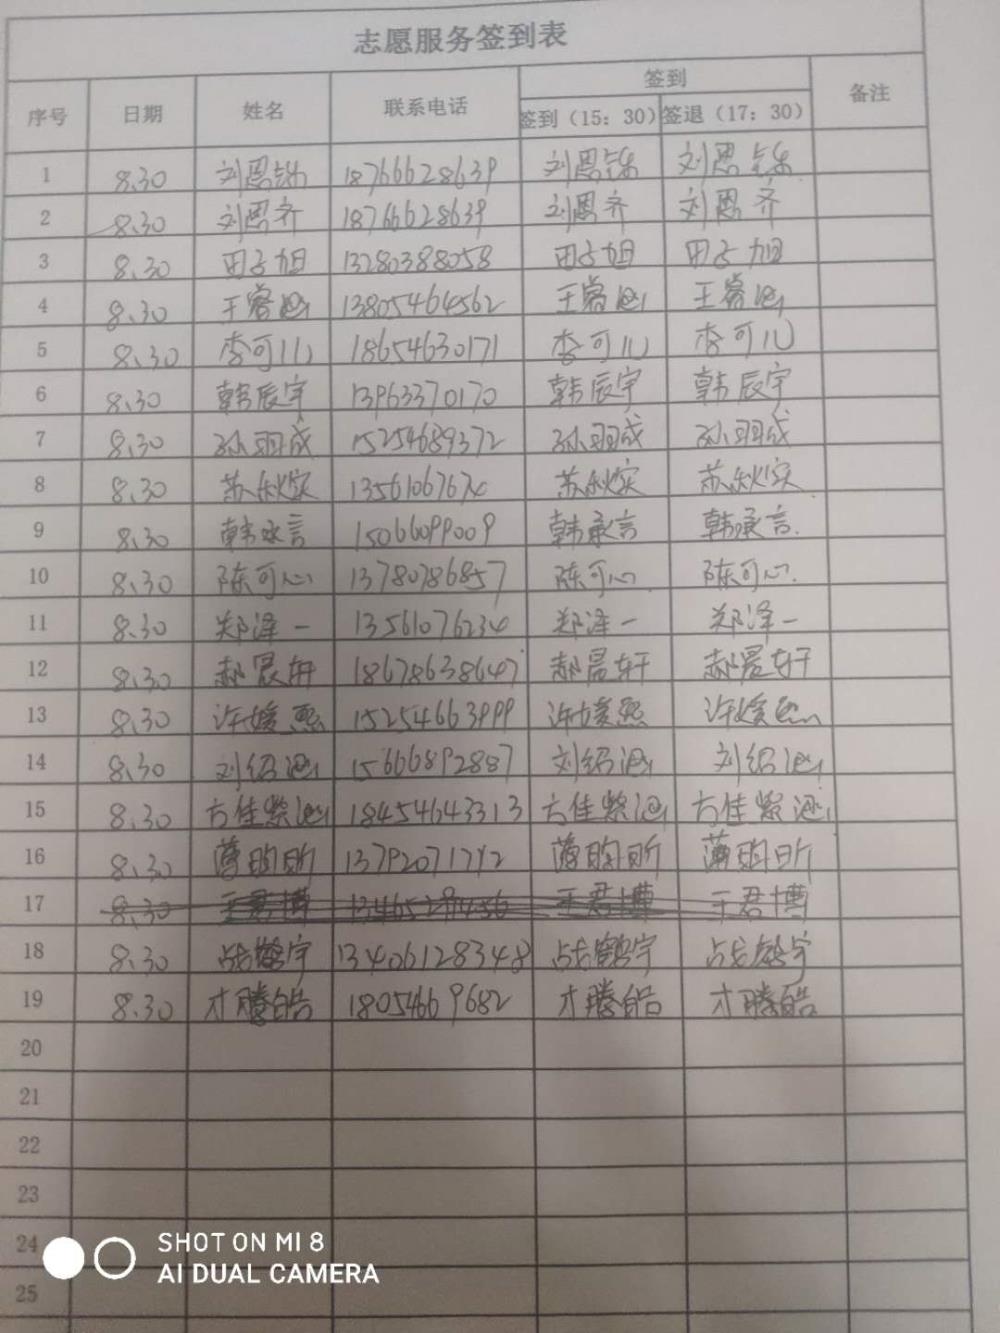 志愿服务签到表
序号 日期 姓名 联系电话 签到 备注
签到（15：30） 签退（17：30）
1 8.30 刘恩铄 18766628639 刘恩铄 刘恩铄
2 8.30 刘恩齐 18766628639 刘恩齐 刘恩齐
3 8.30 田子旭 13280388058 田子旭 田子旭
4 8.30 王睿涵 13805464562 王睿涵 王睿涵
5 8.30 李可儿 18654630171 李可儿 李可儿
6 8.30 韩辰宇 13963370170 韩辰宇 韩辰宇
7 8.30 孙羽成 15254689372 孙羽成 孙羽成
8 8.30 苏秋实 苏秋实 苏秋实
9 8.30 韩承言 15066099009 韩承言 韩承言.
10 8.30 陈可心 13780786857 陈可心 陈可心.
11 8.30 郑泽一 13561076234 郑泽一 郑泽一
12 8.30 郝晨轩 18678638647 郝晨轩 郝晨轩
13 8.30 许媛熙 15254663999 许媛熙 许媛熙
14 8.30 刘绍涵 15666892887 刘绍涵 刘绍涵
15 8.30 方佳紫涵 18454643313 方佳紫涵 方佳紫涵
16 8.30 13792071742
17 8.30 王君博 王君博 王君博
18 8.30 战鹤宇 13406128348 战鹤宇 战鹤宇
19 8.30 才腾皓 18054669682 才腾皓 才腾皓
20
21
22
23
24
25
SHOT ON MI 8
AI DUAL CAMERA